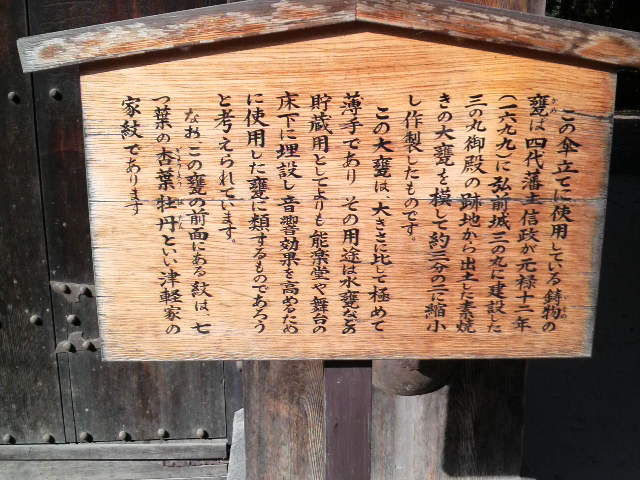 この傘立てに使用している鋳物の
甕は四代藩主信政が元禄十二年
(一六九九)に弘前城三の丸に建設した
三の丸御殿の跡地から出土した素焼
きの大甕を模して約三分の一に縮小
し作製したものです。
この大甕は、大きさに比して極めて
薄手であり その用途は水甕などの
貯蔵用としてよりも能楽堂や舞台の
床下に埋設し音響効果を高めるため
に使用した甕に類するものであろう
と考えられています。
なおこの甕の前面にある紋は、七
つ葉の杏葉牡丹といい津軽家の
家紋であります